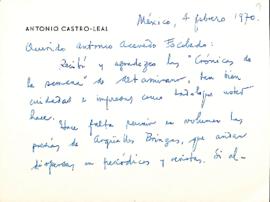 México, 4 febrero 1970.
ANTONIO CASTRO-LEAL
Querido Antonio Acevedo Escobedo:
Recibí y agradezco las "Crónicas de
la semana" de Altamirano, tan bien
cuidadas e impresas como todo lo que usted
hace.
Hace falta reunir en volumen las
poesías de Argüelles Bringas, que andan
dispersas en periódicos y revistas. Si al-